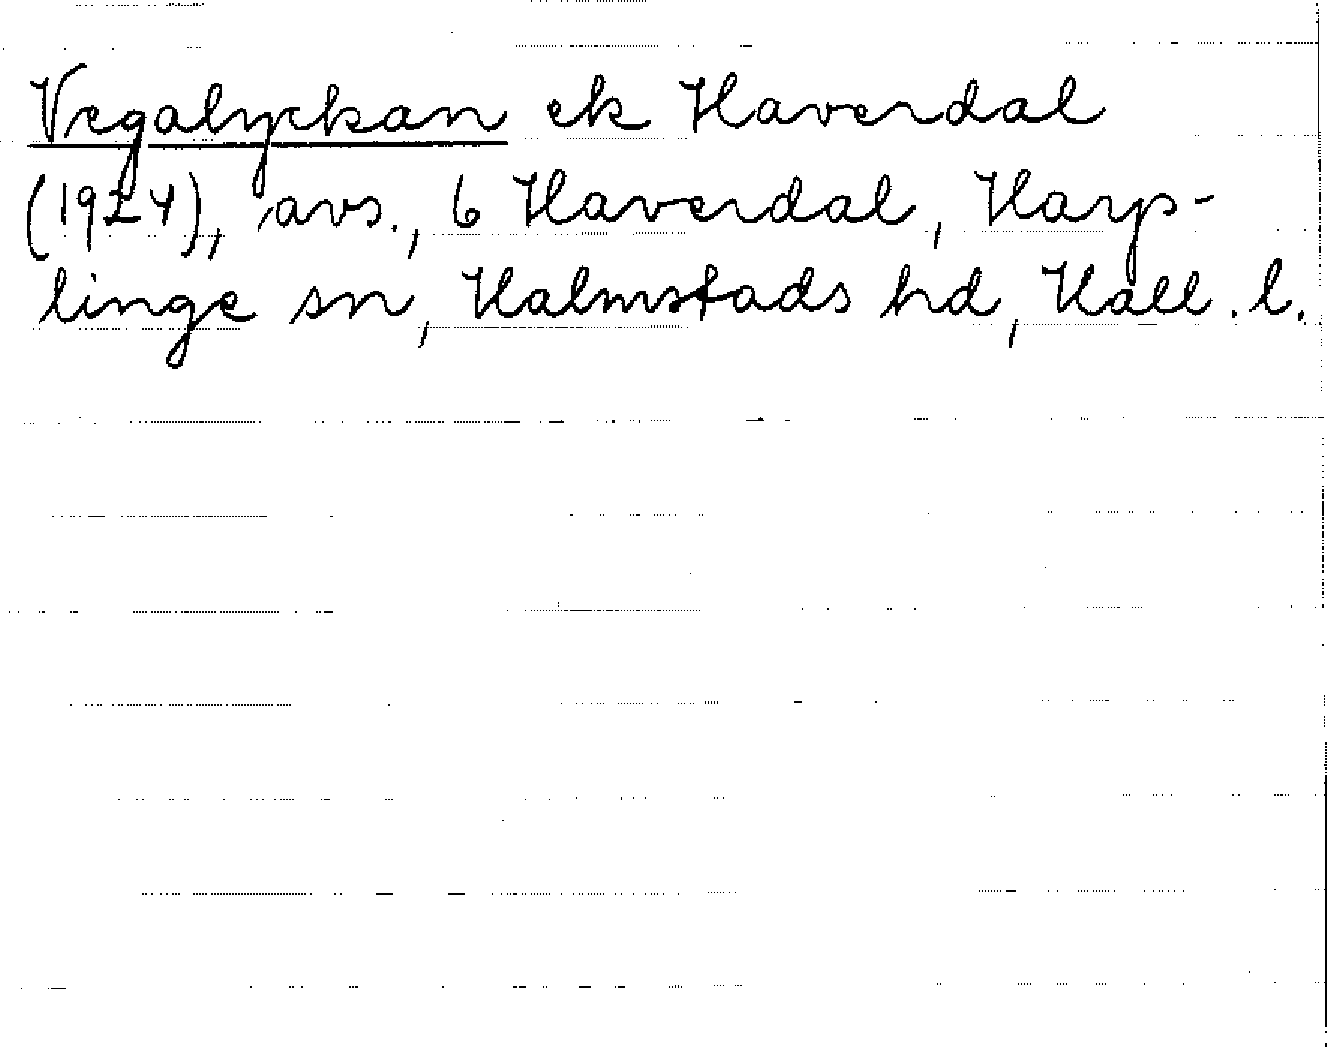 Vegalyckan ek Haverdal
(1924), avs., 6 Haverdal, Harp-
linge sn, Halmstads hd, Hall. l.